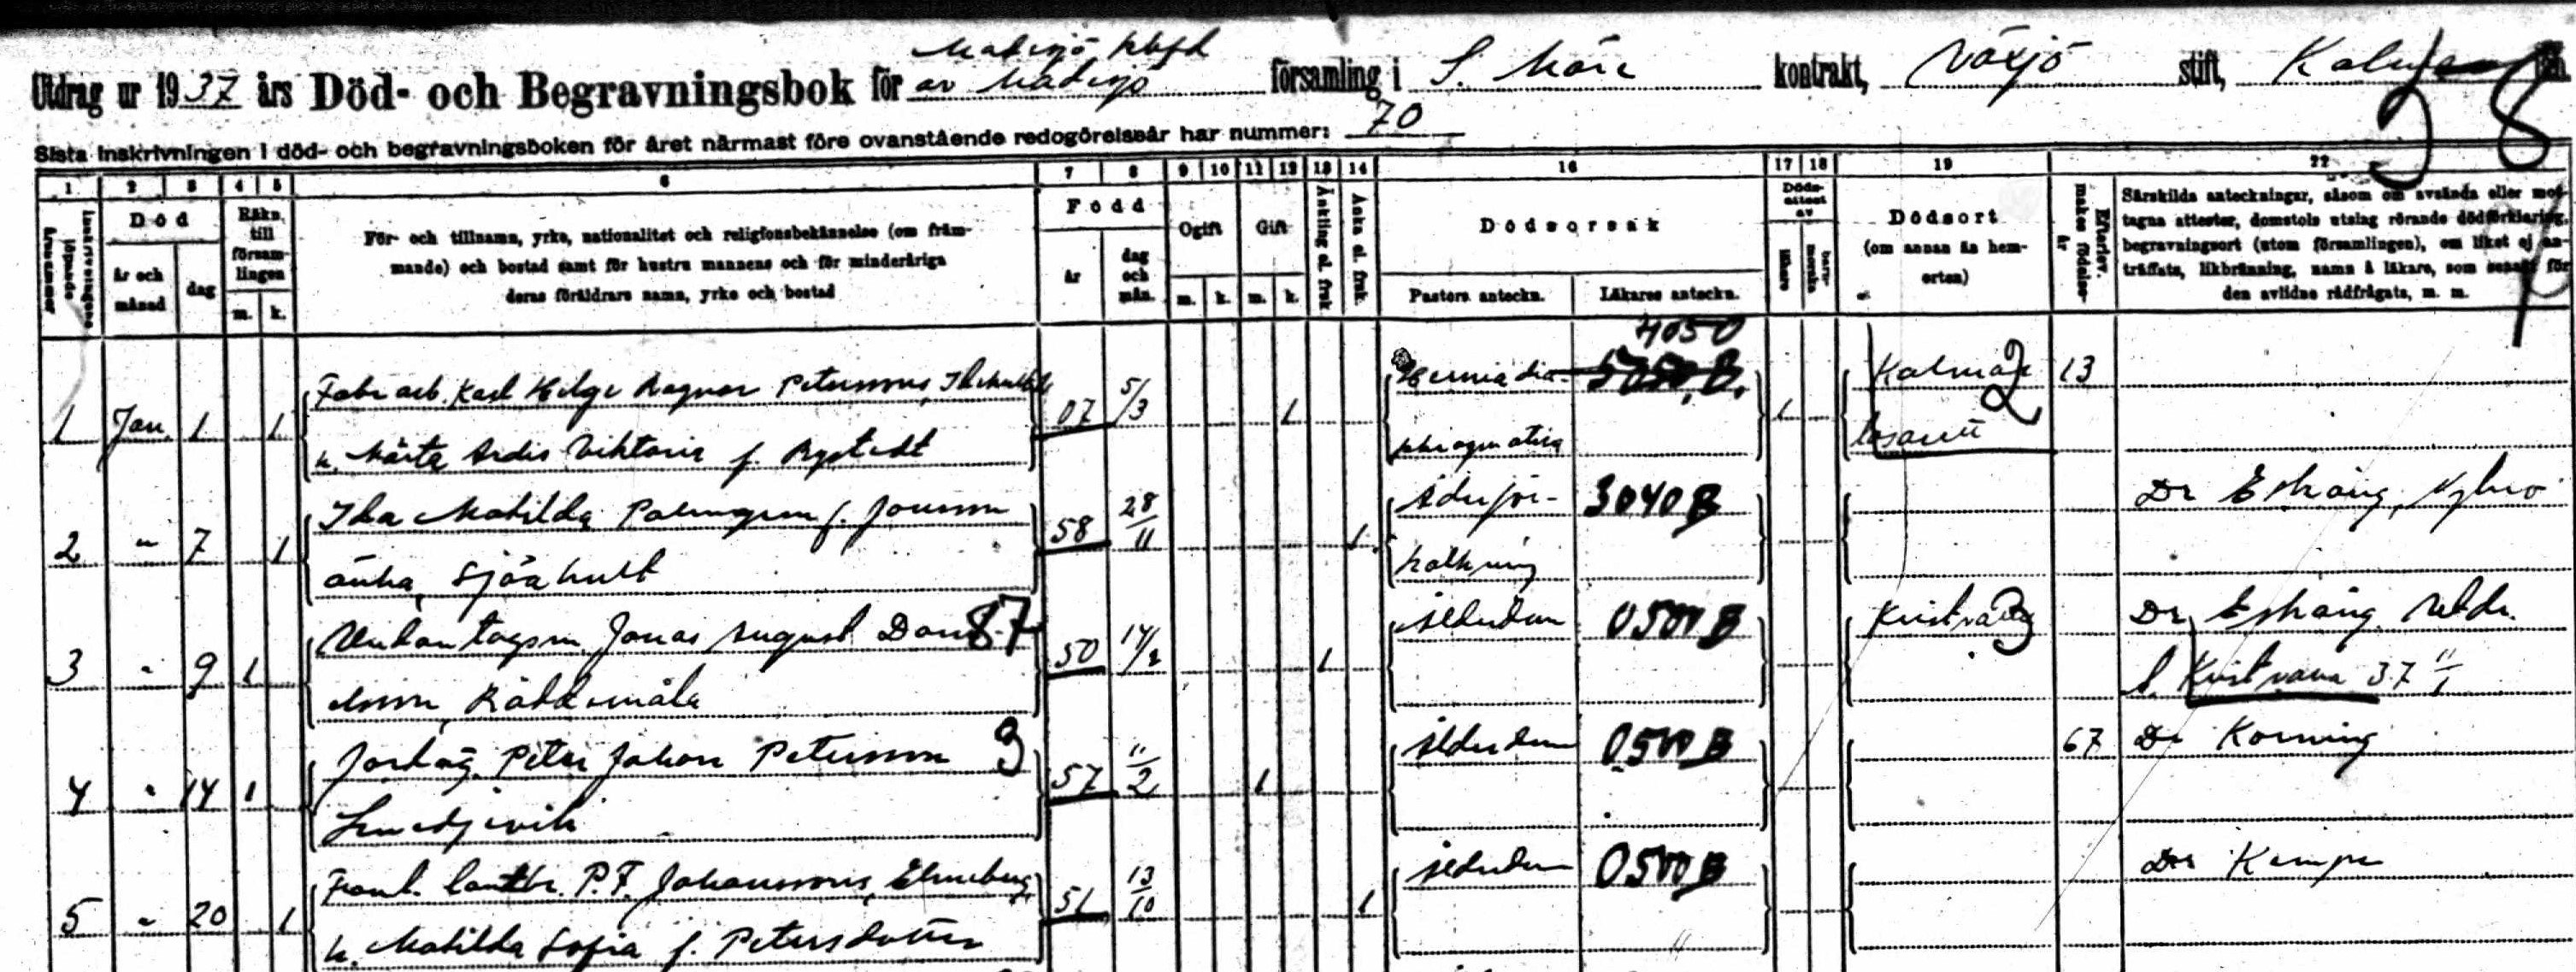 Madesjö kbfd
Utdrag ur 1937 års Död- och Begravningsbok för av Madesjö församling i S. Möre kontrakt, Växjö stift, Kalmar län.
Sista inskrivningen i död- och begravningsboken för året närmast före ovanstående redogörelseår har nummer: 70
38
1 2 3 4 5 6 7 8 9 10 11 12 13 14 16 17 18 19 22
Inskrivningens löpande årsnummer
Död
år och månad
dag
Räkn. till församlingen
m. k.
För- och tillnamn, yrke, nationalitet och religionsbekännelse (om främ-
mande) och bostad samt för hustru mannens och för minderåriga
deras föräldrars namn, yrke och bostad
Född
år
dag och mån.
Ogift
m. k.
Gift
m. k.
Änkling el. frsk
Änka el. frsk.
Dödsorsak
Pastors anteckn.
Läkares anteckn.
Dödsattest av
läkare
barnmorska
Dödsort
(om annan än hem-
orten)
Efterlev. makes födelseår
Särskilda anteckningar, såsom om avsända eller mot-
tagna attester, domstols utslag rörande dödförklaring,
begravningsort (utom församlingen), om liket ej an-
träffats, likbränning, namn å läkare, som senast för
den avlidne rådfrågats, m. m.
4050
1 Jan. 1 1 Fabr arb. Karl Helge Ragnar Peterssons, 07 5/3 1 Hernia dia- 5750, B. 1 Kalmar 2 13
h. Märta Ardis Viktoria f. Rystedt phragmatica lasarett
2 " 7 1 Ida Matilda Palmgren f. Jonsson 58 28/11 1 Åderför- 3040 B Dr Eskäng, Nybro
änka, Sjöahult kalkning
3 " 9 1 Undantagsm. Jonas August Dani- 87 50 1 ålderdom 0500 B Kristvalla 3 Dr Eskäng
elsson, Råddemåla Kristvalla 37 11/1
4 " 14 1 Jordäg. Peter Johan Petersson 3 57 11/2 1 ålderdom 0500 B 67 Dr Korning
Smedjevik
5 " 20 1 lantbr. P. F. Johanssons, 51 13/10 1 ålderdom 0500 B Dr Kempe
h. Matilda Sofia f. Petersdotter